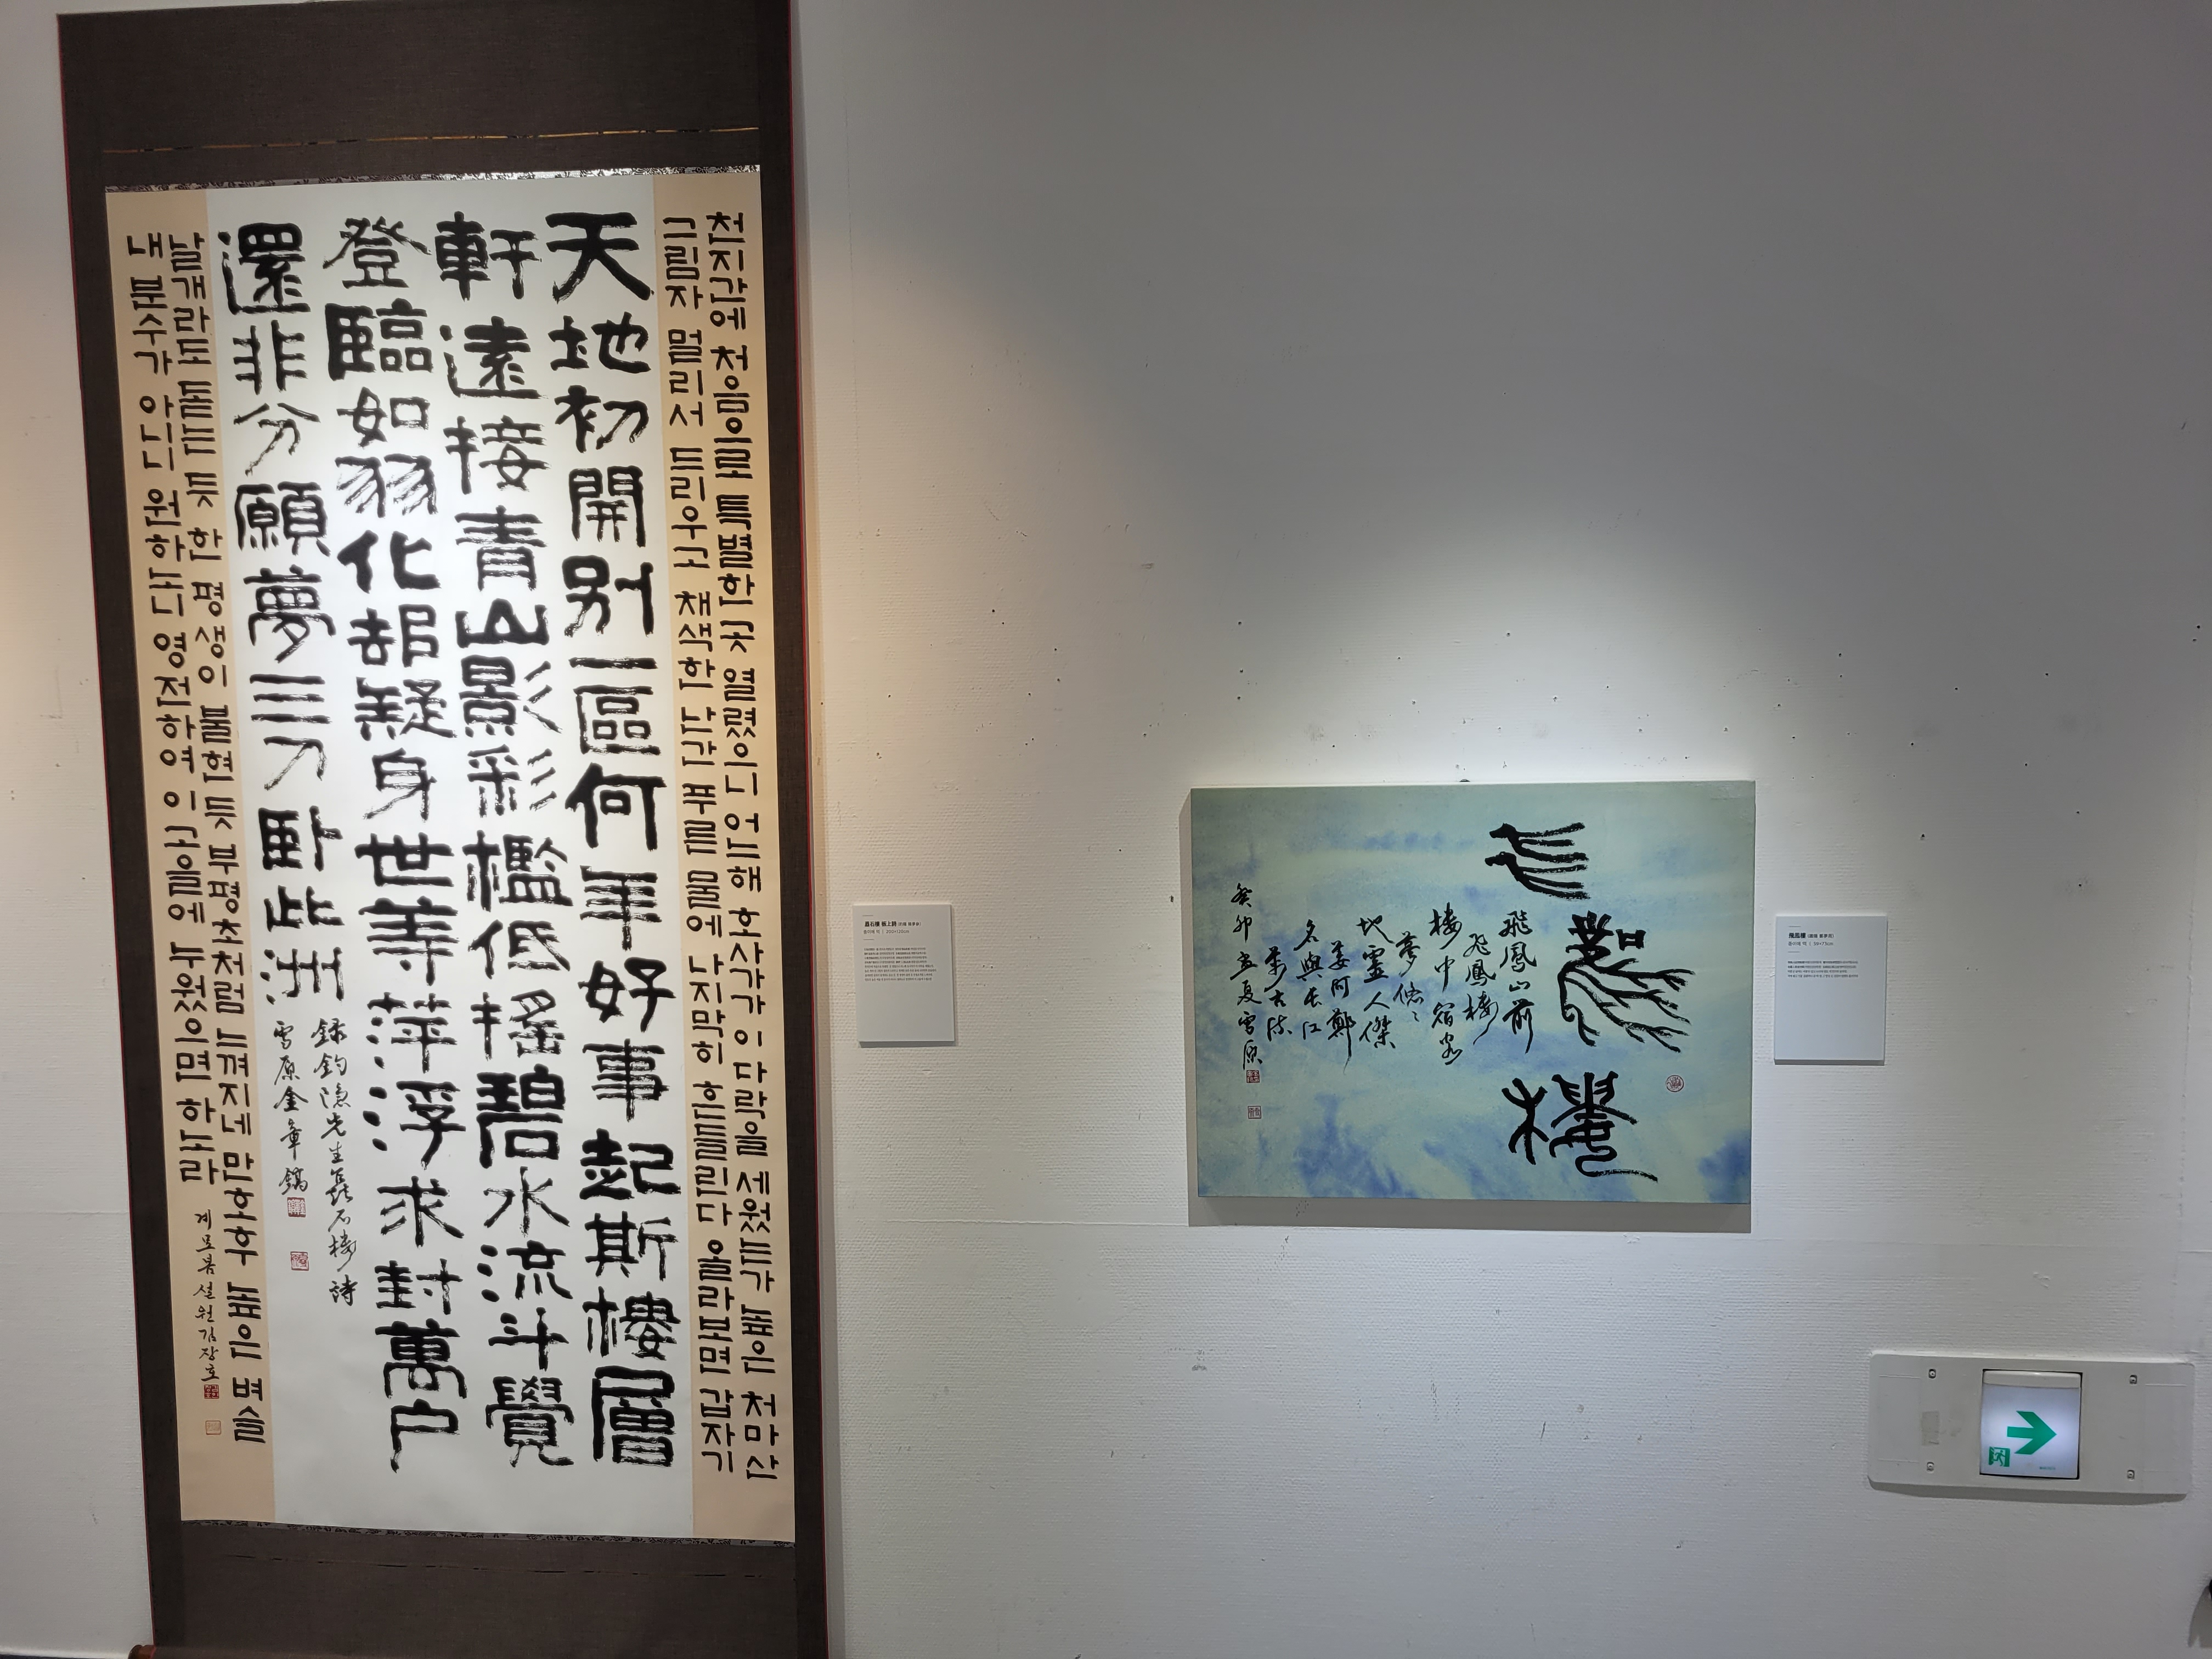 천지간에 처음으로 특별한 곳 열렸으니 어느해 호사가가 이 다락을 세웠는가 높은 처마 산
그림자 멀리서 드리우고 채색한 난간 푸른 물에 나지막히 흔들린다 올라보면 갑자기
天地初開別一區何年好事起斯樓層
軒遠接靑山影彩檻低搖碧水流斗覺
登臨如羽化却疑身世等萍浮求封萬戶
還非分願夢三刀臥此洲
錄鈞隱先生矗石樓詩
雪原金章鎬
날개라도 돋는 듯 한 평생이 불현듯 부평초처럼 느껴지네 만호후 높은 벼슬
내 분수가 아니니 원하노니 영전하여 이 고을에 누웠으면 하노라
계묘봄 설원 김장호
矗石樓 板上詩
飛鳳樓
飛鳳山前
飛鳳樓
樓中宿客
夢悠悠
地靈人傑
姜河鄭
名與長江
萬古流
癸卯立夏雪原
飛鳳樓